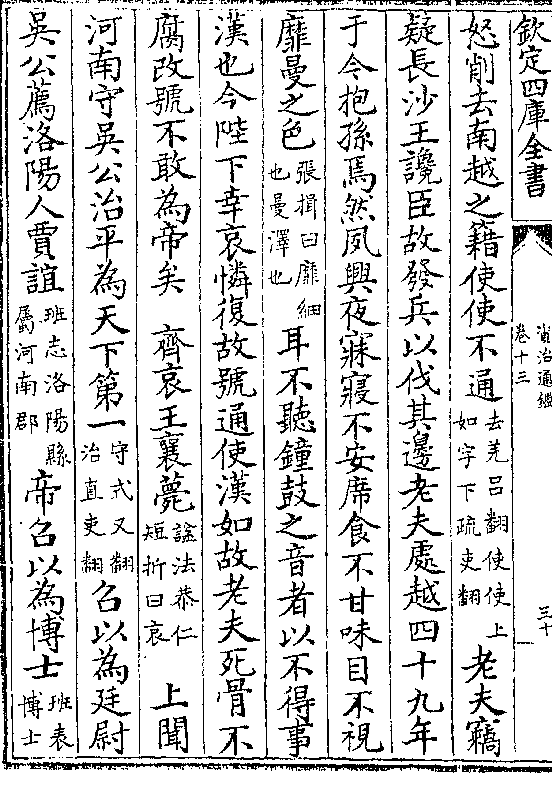 欽定四庫全書
資治通鑑
卷十三
三十
怒削去南越之籍使使不通去羌呂翻使使上如字下疏吏翻老夫竊
疑長沙王讒臣故發兵以伐其邊老夫處越四十九年
于今抱孫焉然夙興夜寐寢不安席食不甘味目不視
靡曼之色張揖曰靡細也曼澤也耳不聽鐘鼓之音者以不得事
漢也今陛下幸哀憐復故號通使漢如故老夫死骨不
腐改號不敢為帝矣　齊哀王襄薨諡法恭仁短折曰哀　上聞
河南守吳公治平為天下第一守式又翻治直吏翻召以為廷尉
吳公薦洛陽人賈誼班志洛陽縣屬河南郡帝召以為博士班表博士